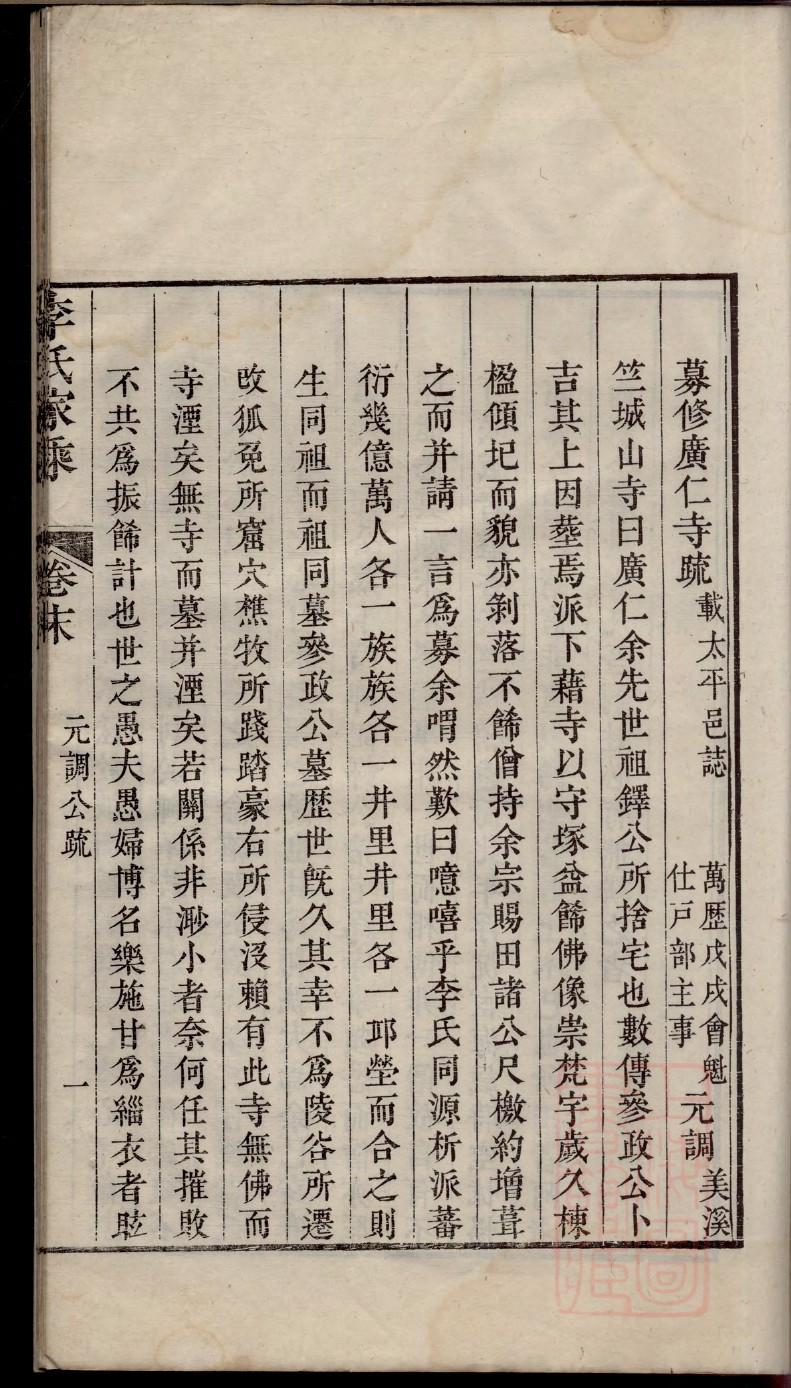 募修廣仁寺疏 載太平邑誌 萬歷戊戌會魁仕戸部主事 元調 美溪
竺城山寺曰廣仁余先世祖鐸公所捨宅也數傳參政公卜
吉其上因塟焉派下藉寺以守塚益餙佛像崇梵宇歲久棟
楹傾圮而貌亦剝落不餙僧持余宗賜田諸公尺檄約增葺
之而并請一言爲募余喟然歎曰噫嘻乎李氏同源析派蕃
衍幾億萬人各一族族各一井里井里各一邱塋而合之則
生同祖而祖同墓參政公墓歷世旣久其幸不爲陵谷所遷
改狐兔所窟穴樵牧所踐踏豪右所侵沒賴有此寺無佛而
寺湮矣無寺而墓并湮矣若關係非渺小者奈何任其摧敗
不共爲振餙計也世之愚夫愚婦博名樂施甘爲緇衣者眩
李氏家乘 卷末 元調公疏 一